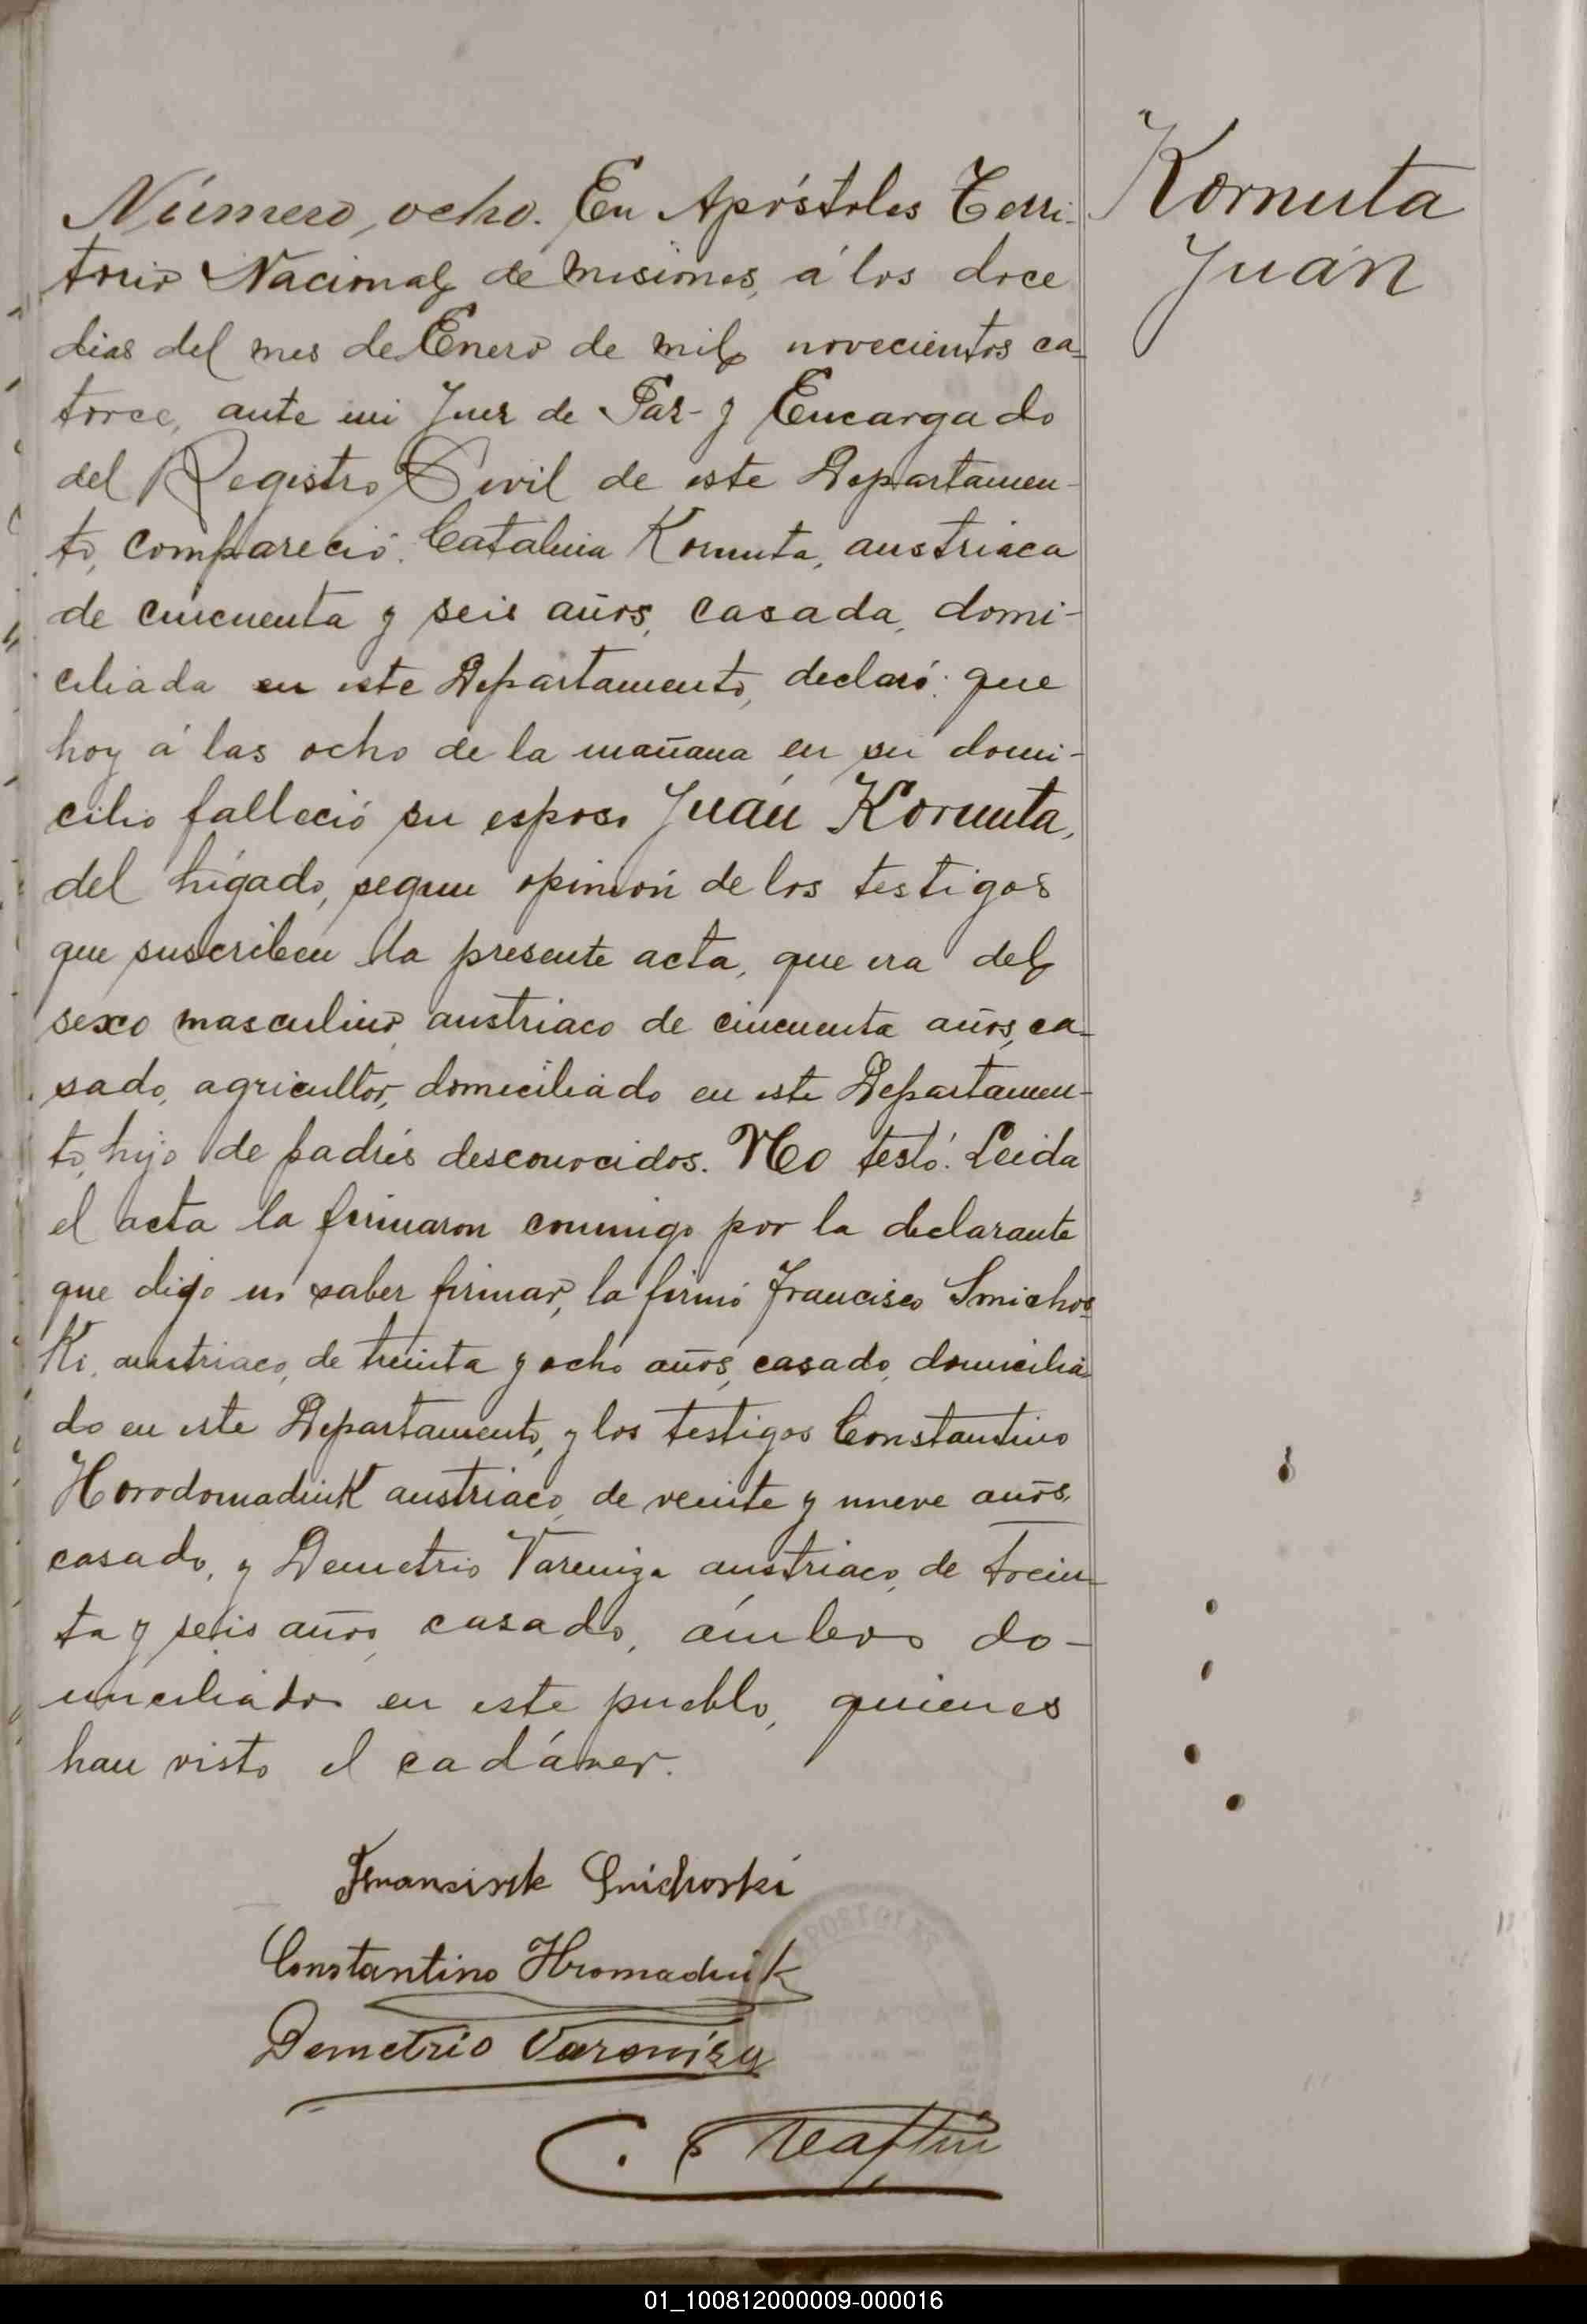 Número, ocho. En Apóstoles Terri-
torio Nacional de Misiones, á los doce
dias del mes de Enero de mil novecientos ca-
torce, ante mi Juez de Paz y Encargado
del Registro Civil de este Departamen-
to, compareció: Catalina Kornuta, austriaca
de cincuenta y seis años, casada, domi-
ciliada en este Departamento, declaró: que
hoy á las ocho de la mañana en su domi-
cilio falleció su esposo Juán Kornuta,
del hígado, segun opinión de los testigos
que suscriben la presente acta, que era del
sexo masculino, austriaco de cincuenta años, ca-
sado, agricultor, domiciliado en este Departamen-
to, hijo de padres desconocidos. No testó. Leida
el acta la firmaron conmigo por la declarante
que dijo no saber firmar, la firmó Francisco Smichos-
Ki, austriaco, de treinta y ocho años, casado, domicilia-
do en este Departamento, y los testigos Constantino
Horodomadnik austriaco, de veinte y nueve años,
casado, y Demetrio Vareniza austriaco, de trein-
ta y seis años, casado, ámbos do-
miciliados en este pueblo, quienes
han visto el cadáver.
Kornuta
Juán
Constantino Hromadnik
Demetrio Vareniza
APOSTOLES
01_100812000009-000016